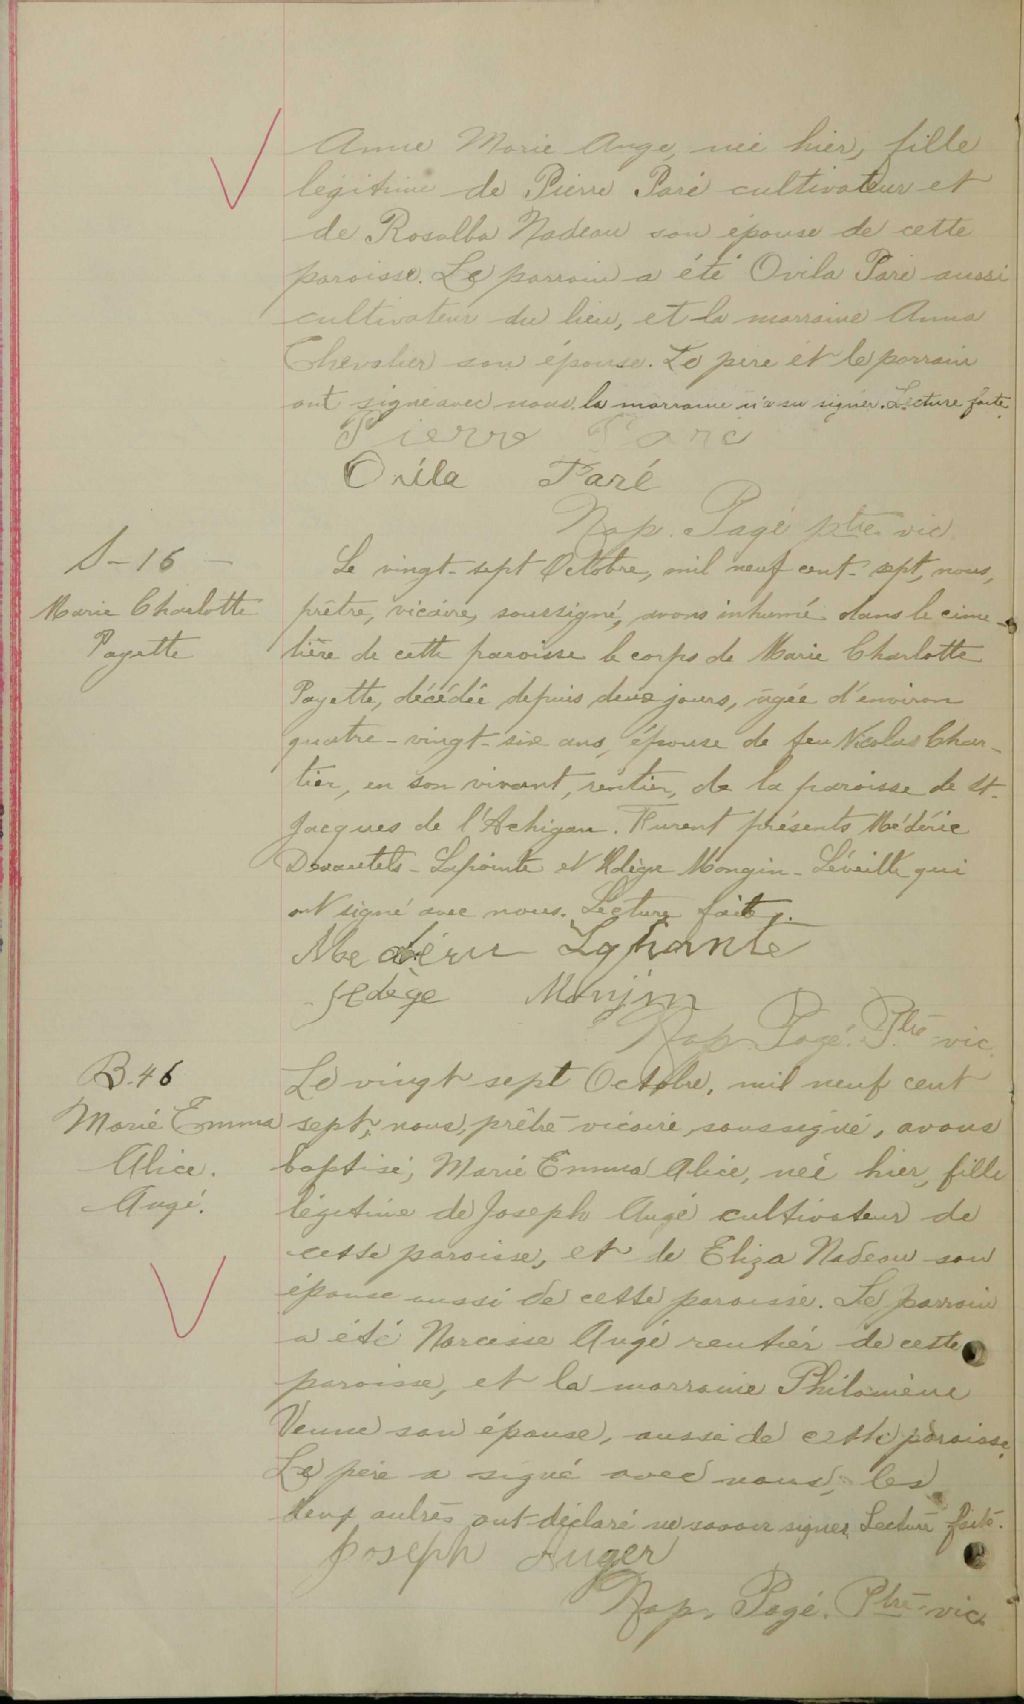 Anne Marie Ange, née hier, fille
légitime de Pierre Paré cultivateur et
de Rosalba Nadeau son épouse de cette
paroisse. Le parrain a été Ovila Paré aussi
cultivateur du lieu, et la marraine Anna
Chevalier son épouse. Le père et le parrain
ont signé avec nous. la marraine n'a su signer. Lecture faite.
Pierre Paré
Ovila Paré
Nap. Pagé ptre vic.
S-16
Marie Charlotte
Payette
Le vingt-sept Octobre, mil neuf cent-sept, nous,
prêtre, vicaire, soussigné, avons inhumé dans le cime-
tière de cette paroisse le corps de Marie Charlotte
Payette, décédée depuis deux jours, âgée d'environ
quatre-vingt-six ans, épouse de feu Nicolas Char-
tier, en son vivant, rentier, de la paroisse de St-
Jacques de l'Achigan. Furent présents Médéric
Desautels-Lapointe et Hdège Mongin-Léveillé qui
ont signé avec nous. Lecture faite.
Mederic Lapointe
Hdège Monjin
Nap. Pagé. Ptre-vic.
B.46
Marie Emma
Alice.
Augé.
Le vingt sept Octobre, mil neuf cent
sept, nous, prêtre-vicaire soussigné, avons
baptisé, Marie Emma Alice, née hier, fille
légitime de Joseph Augé cultivateur de
cette paroisse, et de Eliza Nadeau son
épouse aussi de cette paroisse. Le parrain
a été Narcisse Augé rentier de cette
paroisse, et la marraine Philomène
Venne son épouse, aussi de cette paroisse.
Le père a signé avec nous, les
deux autres ont déclaré ne savoir signer. Lecture faite.
Joseph Auger
Nap. Pagé. Ptre-vic.